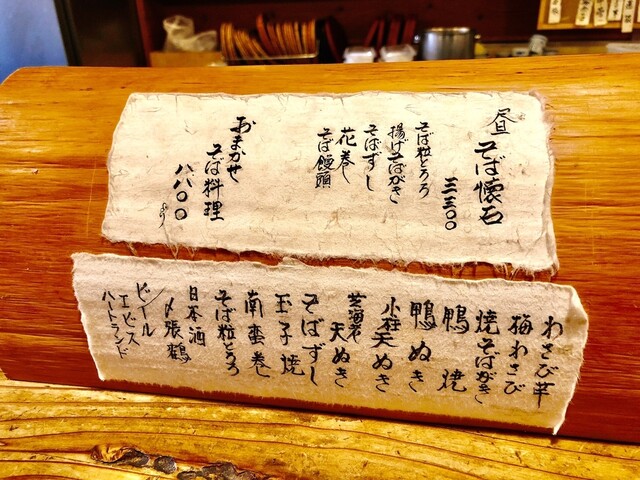 昼 そば懐石
三三〇〇
そば粒とろろ
揚げそばがき
そばずし
花巻
そば饅頭
おまかせ
そば料理
八八〇〇
より
わさび芋
梅わさび
焼そばがき
鴨焼
鴨ぬき
小柱天ぬき
芝海老天ぬき
そばずし
玉子焼
南蛮巻
そば粒とろろ
日本酒
〆張鶴
ビール
エビス
ハートランド